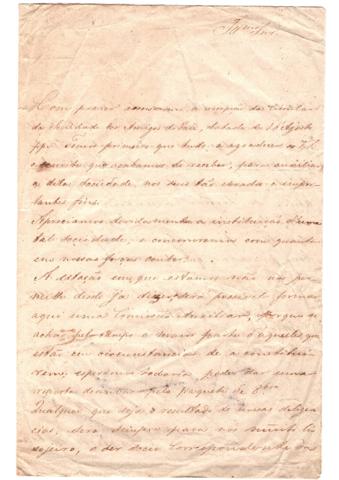 Illmo Snr.
Com prazer accusamos a recepção da Circular
da Sociedade dos Amigos de , datada de Agosto
ppo. Temos primeiro que tudo, a agradecer a V.S.
o convite que acabamos de receber, para auxiliar
a dita Sociedade, nos seus tão elevados e impor-
tantes fins.
Apreciamos devidamente a instituição d'uma
tal sociedade, e concorreremos com quanto
em nossas forças couber.
A estação em que estamos não nos per-
mitte desde já dizer será possivel formar
aqui uma Comissão Auxiliar, porque se
achão fora a maior parte d'aquelles que
estão em circunstancias de a constituir
esperamos todavia poder dar uma
resposta pelo paquete de
Qualquer que seja o resultado de nossas deligen-
cias, será sempre para nós muito li-
songeiro, o ser socio Correspondente da